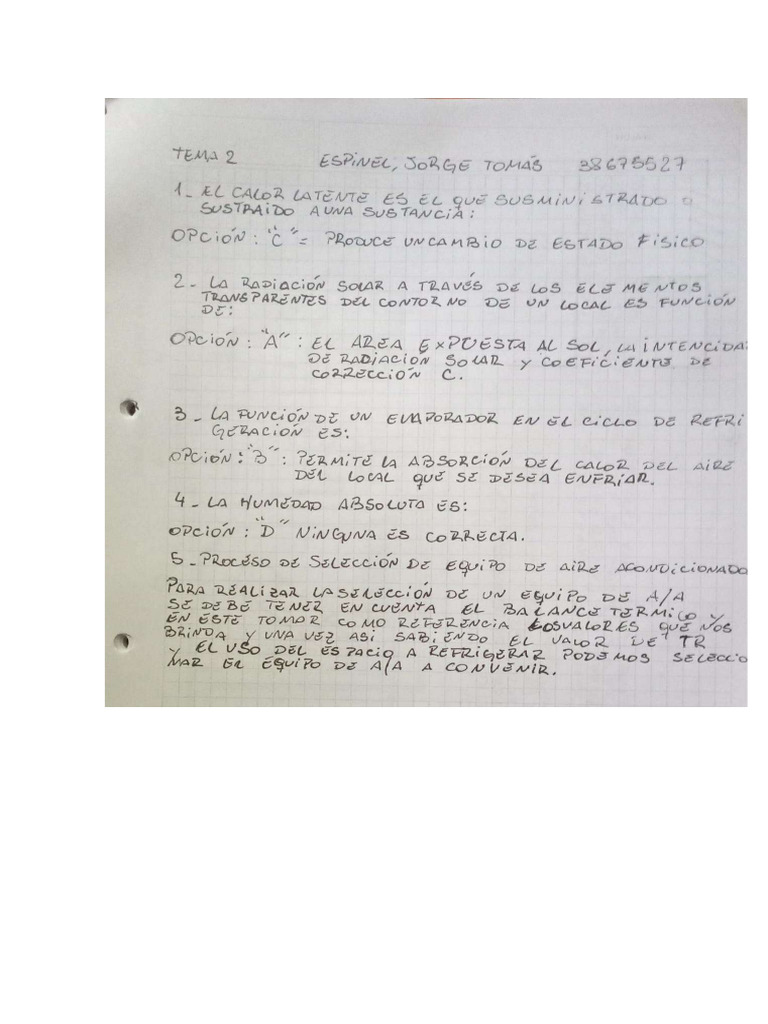 TEMA 2 ESPINEL, JORGE TOMÁS 38675527
1- EL CALOR LATENTE ES EL QUE SUSMINISTRADO O
SUSTRAIDO A UNA SUSTANCIA:
OPCIÓN: "C" = PRODUCE UN CAMBIO DE ESTADO FISICO
2- LA RADIACIÓN SOLAR A TRAVÉS DE LOS ELEMENTOS
TRANSPARENTES DEL CONTORNO DE UN LOCAL ES FUNCIÓN
DE:
OPCIÓN: "A": EL AREA EXPUESTA AL SOL, LA INTENCIDA
DE RADIACIÓN SOLAR Y COEFICIENTE DE
CORRECCIÓN C.
3- LA FUNCIÓN DE UN EVAPORADOR EN EL CICLO DE REFRI
GERACIÓN ES:
OPCIÓN: "B": PERMITE LA ABSORCIÓN DEL CALOR DEL AIRE
DEL LOCAL QUE SE DESEA ENFRIAR.
4- LA HUMEDAD ABSOLUTA ES:
OPCIÓN: "D" NINGUNA ES CORRECTA.
5- PROCESO DE SELECCIÓN DE EQUIPO DE AIRE ACONDICIONADO
PARA REALIZAR LA SELECCIÓN DE UN EQUIPO DE A/A
SE DEBE TENER EN CUENTA EL BALANCE TERMICO Y
EN ESTE TOMAR COMO REFERENCIA LOS VALORES QUE NOS
BRINDA Y UNA VEZ ASI SABIENDO EL VALOR DE "TR"
Y EL USO DEL ESPACIO A REFRIGERAR PODEMOS SELECCIO
NAR EL EQUIPO DE A/A A CONVENIR.